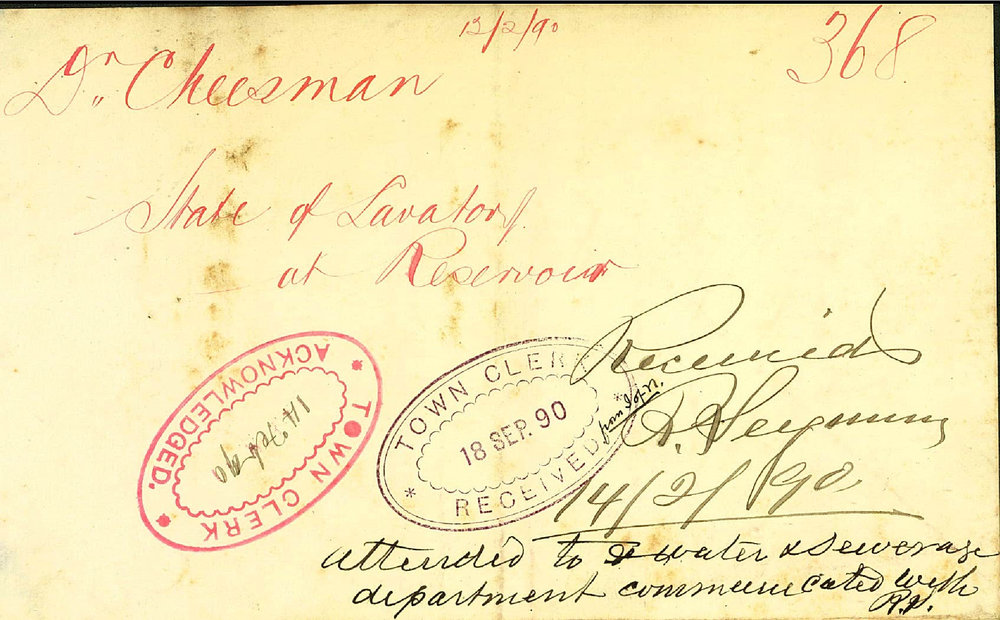 12/2/90
368
Dr. Cheesman
State of Lavatory
at Reservoir
TOWN CLERK
ACKNOWLEDGED.
14 Feb 90
TOWN CLERK
18 SEP. 90
RECEIVED
from Insp.
Received
R. Seymour
14/2/90
attended to & water & Sewerage
department communicated with
R.S.